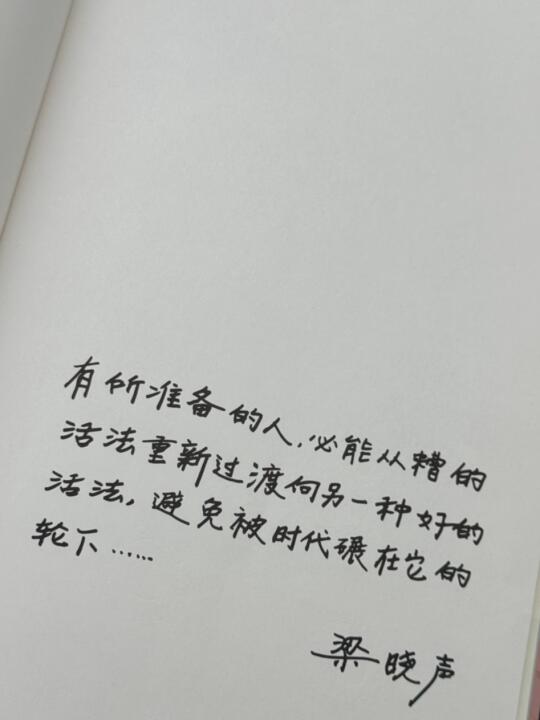 有所准备的人,必能从糟的
活法重新过渡向另一种好的
活法,避免被时代碾在它的
轮下……
梁晓声